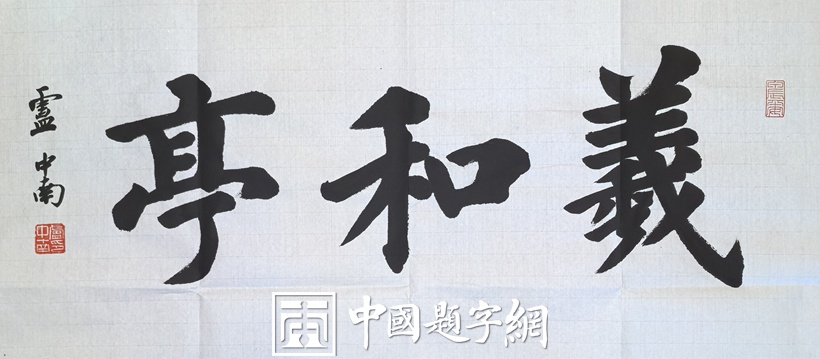 羲和亭
盧中南
中國題字網